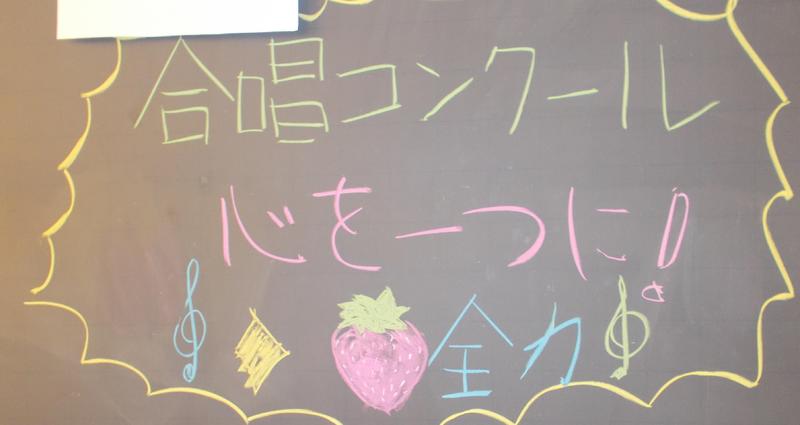 合唱コンクール
心を一つに!
全力